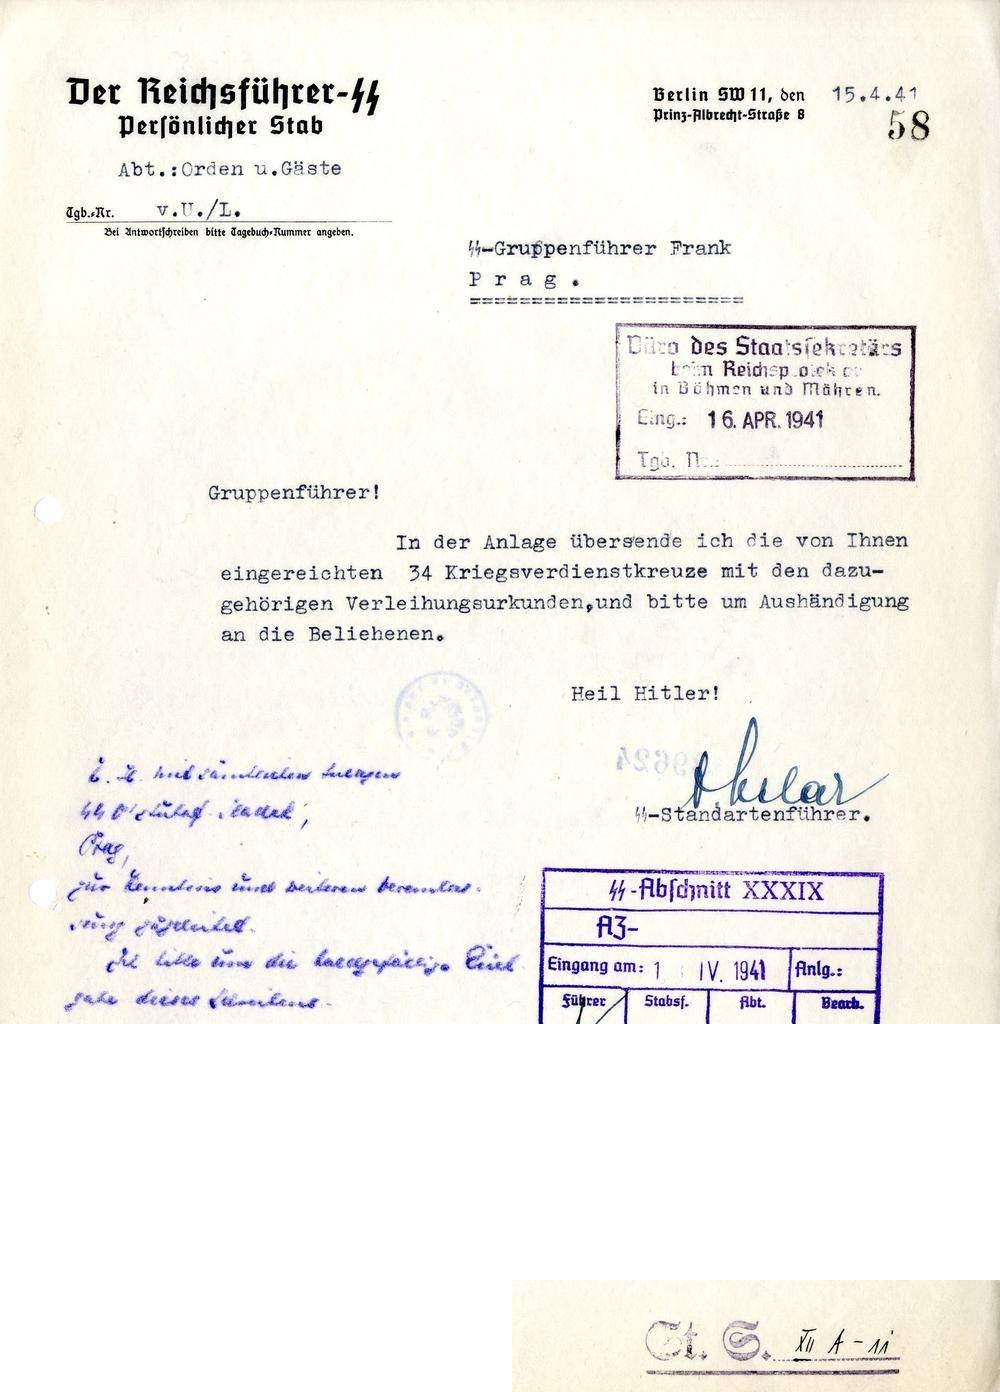 Der Reichsführer-SS
Persönlicher Stab
Abt.:Orden u.Gäste
Tgb.-Nr. v.U./L.
Bei Antwortschreiben bitte Tagebuch-Nummer angeben.
Berlin SW 11, den 15.4.41
Prinz-Albrecht-Straße 8
58
SS-Gruppenführer Frank
P r a g .
======================
Büro des Staatssekretärs
beim Reichsprotektor
in Böhmen und Mähren.
Eing.: 16. APR. 1941
Tgb. Nr.:
Gruppenführer!
In der Anlage übersende ich die von Ihnen
eingereichten 34 Kriegsverdienstkreuze mit den dazu-
gehörigen Verleihungsurkunden,und bitte um Aushändigung
an die Beliehenen.
Heil Hitler!
39624
SS-Standartenführer.
mit sämtlichen
SS
Prag,
zur Kenntnis und weiteren Veranlas-
sung zugeleitet.
Ich bitte um die baldgefällige Rück-
gabe dieses Schreibens.
SS-Abschnitt XXXIX
AZ-
Eingang am: 1 IV. 1941 Anlg.:
Führer Stabsf. Abt. Bearb.
St. S. XII A - 11